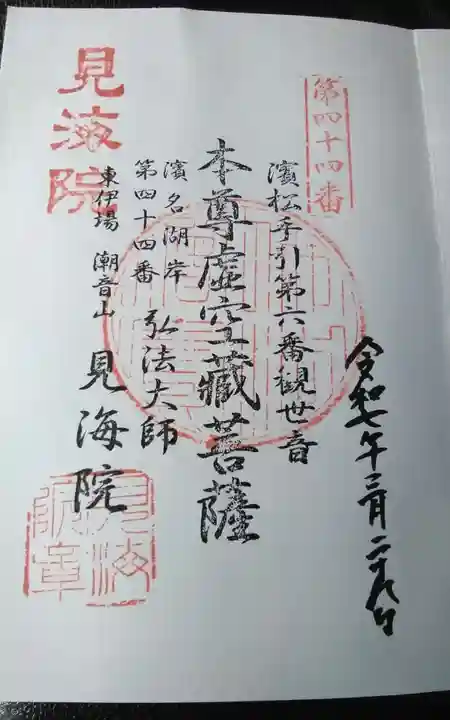 第四十四番
令和七年三月二十九日
濱松手引第六番観世音
本尊虚空蔵菩薩
濱名湖岸
第四十四番 弘法大師
東伊場 潮音山 見海院
見海院